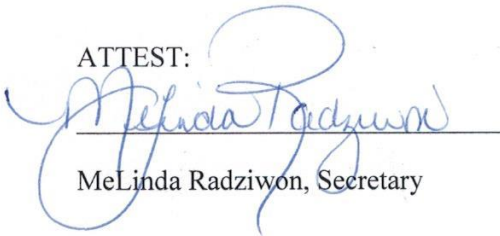 ATTEST:
MeLinda Radziwon
MeLinda Radziwon, Secretary